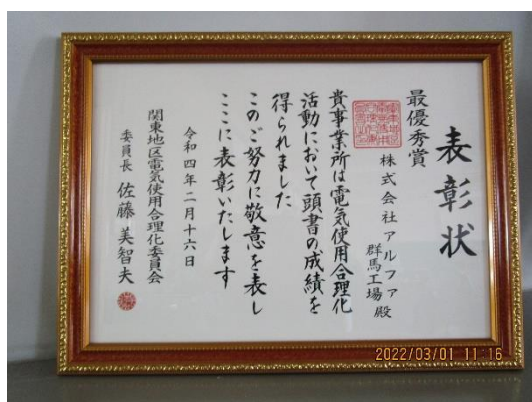 表彰状
最優秀賞
株式会社アルファ
群馬工場殿
貴事業所は電気使用合理化
活動において頭書の成績を
得られました
このご努力に敬意を表し
ここに表彰いたします
令和四年二月十六日
関東地区電気使用合理化委員会
委員長 佐藤美智夫
2022/03/01 11:16